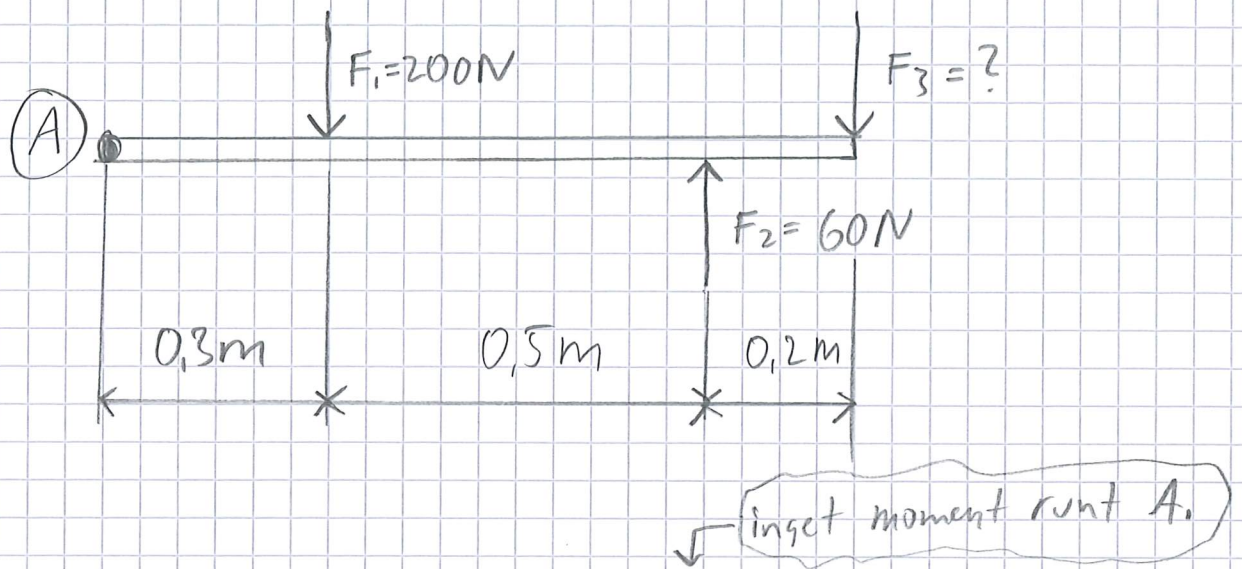 F₁=200N
F₃=?
A
F₂=60N
0,3m
0,5m
0,2m
inget moment runt A.